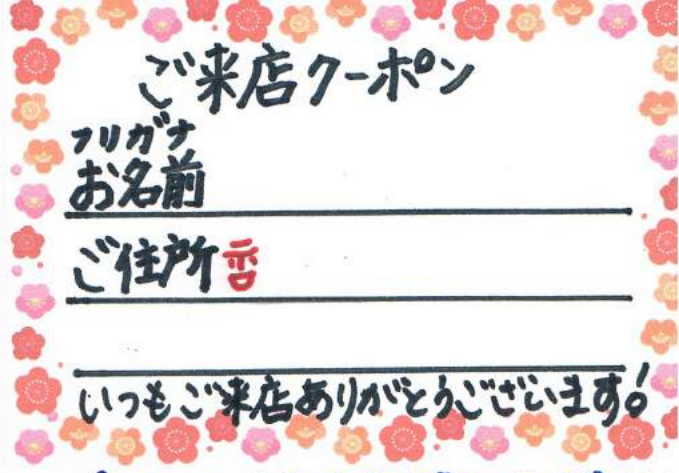 ご来店クーポン
フリガナ
お名前
ご住所〒
いつもご来店ありがとうございます!